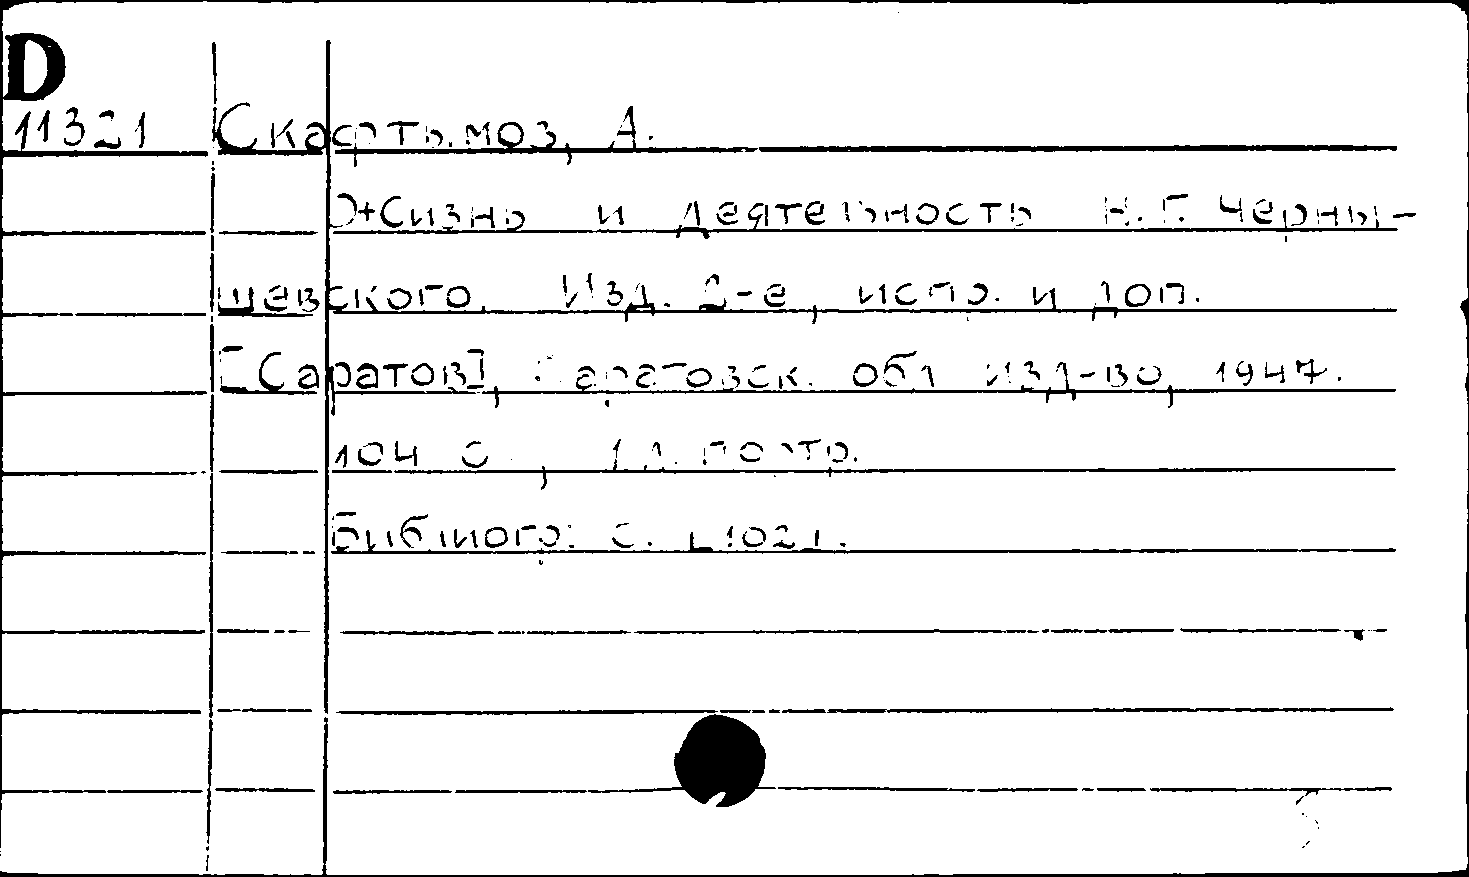 D
11321 Скафтымов, А.
Жизнь и деятельность Н.Г. Черны-
шевского. Изд. 2-е, испр. и доп.
[Саратов], Саратовск. обл. изд-во, 1947.
104 с., 1 л. портр.
Библиогр: с. [102].